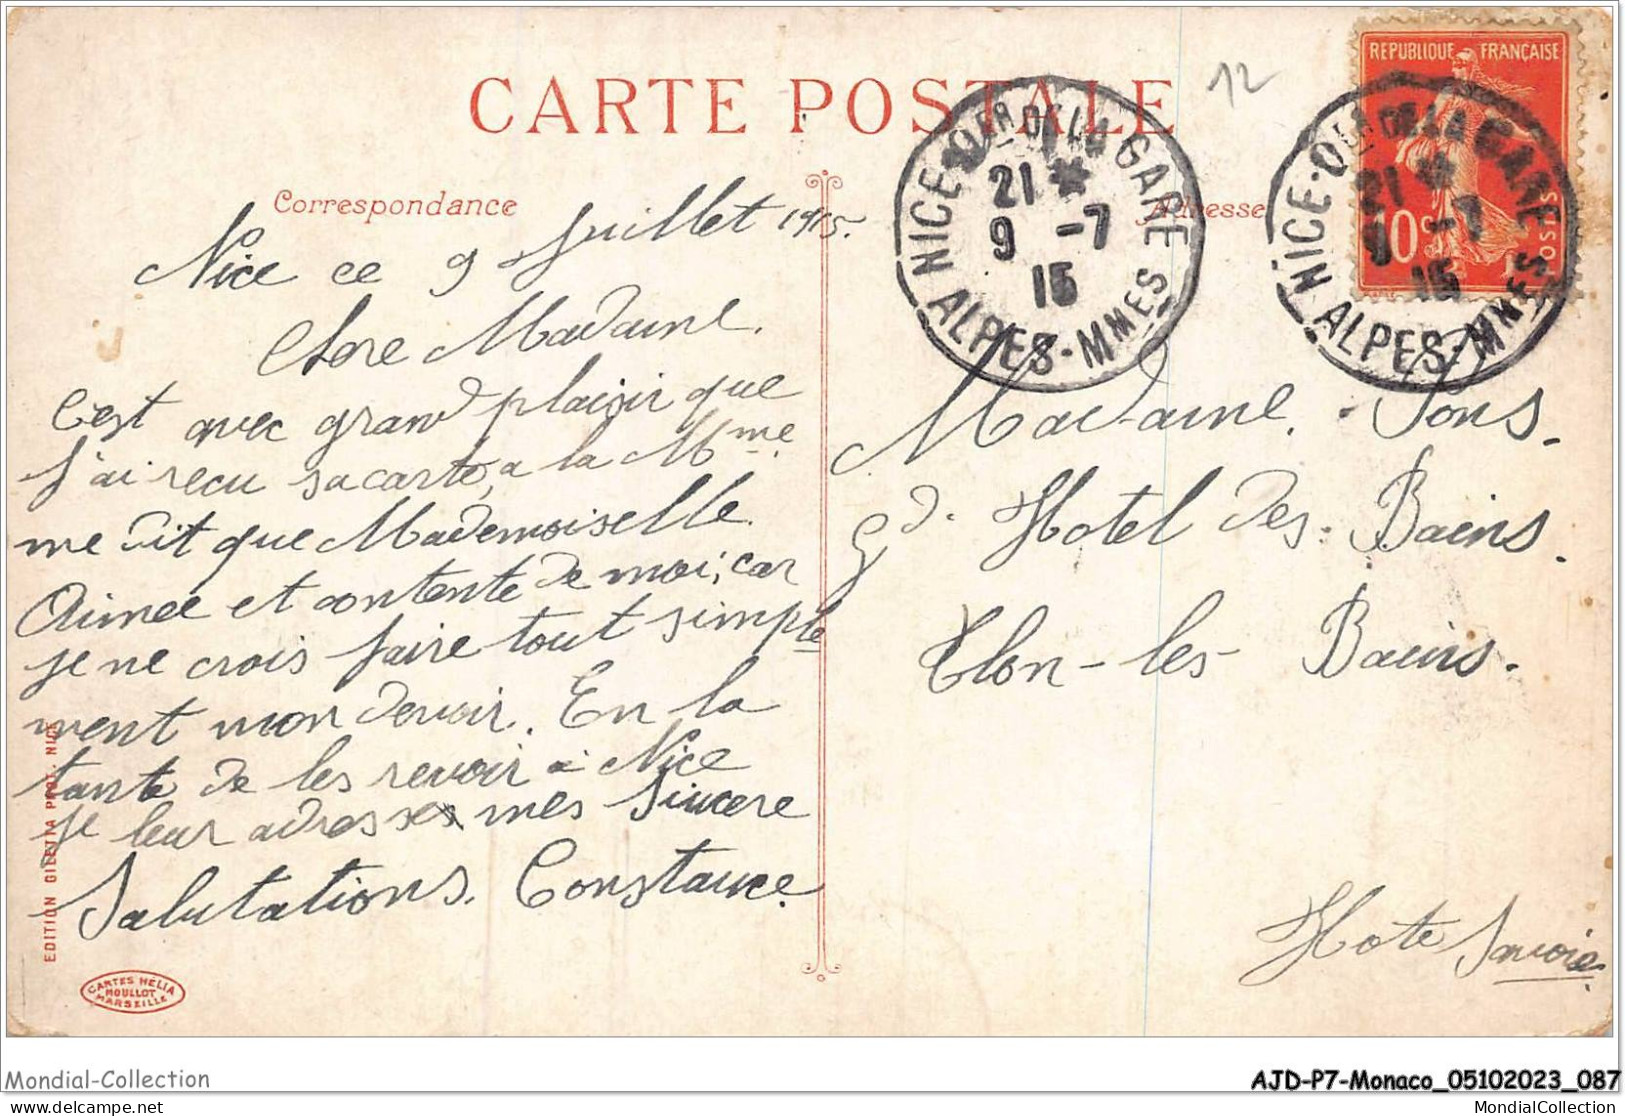 CARTE POSTALE
12
Correspondance
Adresse
NICE · QER DE LA GARE
21 *
9 -7
15
ALPES-MMES
NICE · QER DE LA GARE
21 *
9 -7
15
ALPES-MMES
REPUBLIQUE FRANÇAISE
10 c
POSTES
Nice ce 9 Juillet 1915.
Chere Madame.
C'est avec grand plaisir que
J'ai recu sa carte, a la Mme
me dit que Mademoiselle
Aimee et contente de moi, car
je ne crois faire tout simple
ment mon devoir. En la
tante de les revoir à Nice
je leur adresses mes Sincere
Salutations. Constance.
Madame. Pons.
Gd. Hotel des Bains.
Elon-les-Bains.
Hote Savoie
EDITION GILETTA PHOT. NICE
CARTES HÉLIA
MOULLOT
MARSEILLE
Mondial-Collection
AJD-P7-Monaco_05102023_087
delcampe.net
MondialCollection